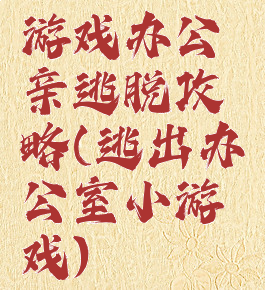 游戏办公
亲逃脱攻
略(逃出办
公室小游
戏)